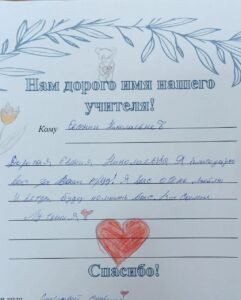 Нам дорого имя нашего
учителя!
Кому Евгении Николаевне
Дорогая Евгения Николаевна Я благодарю
вас за Ваш труд! Я вас очень люблю
и всегда буду помнить вас. Вы самая
Лучшая
Спасибо!